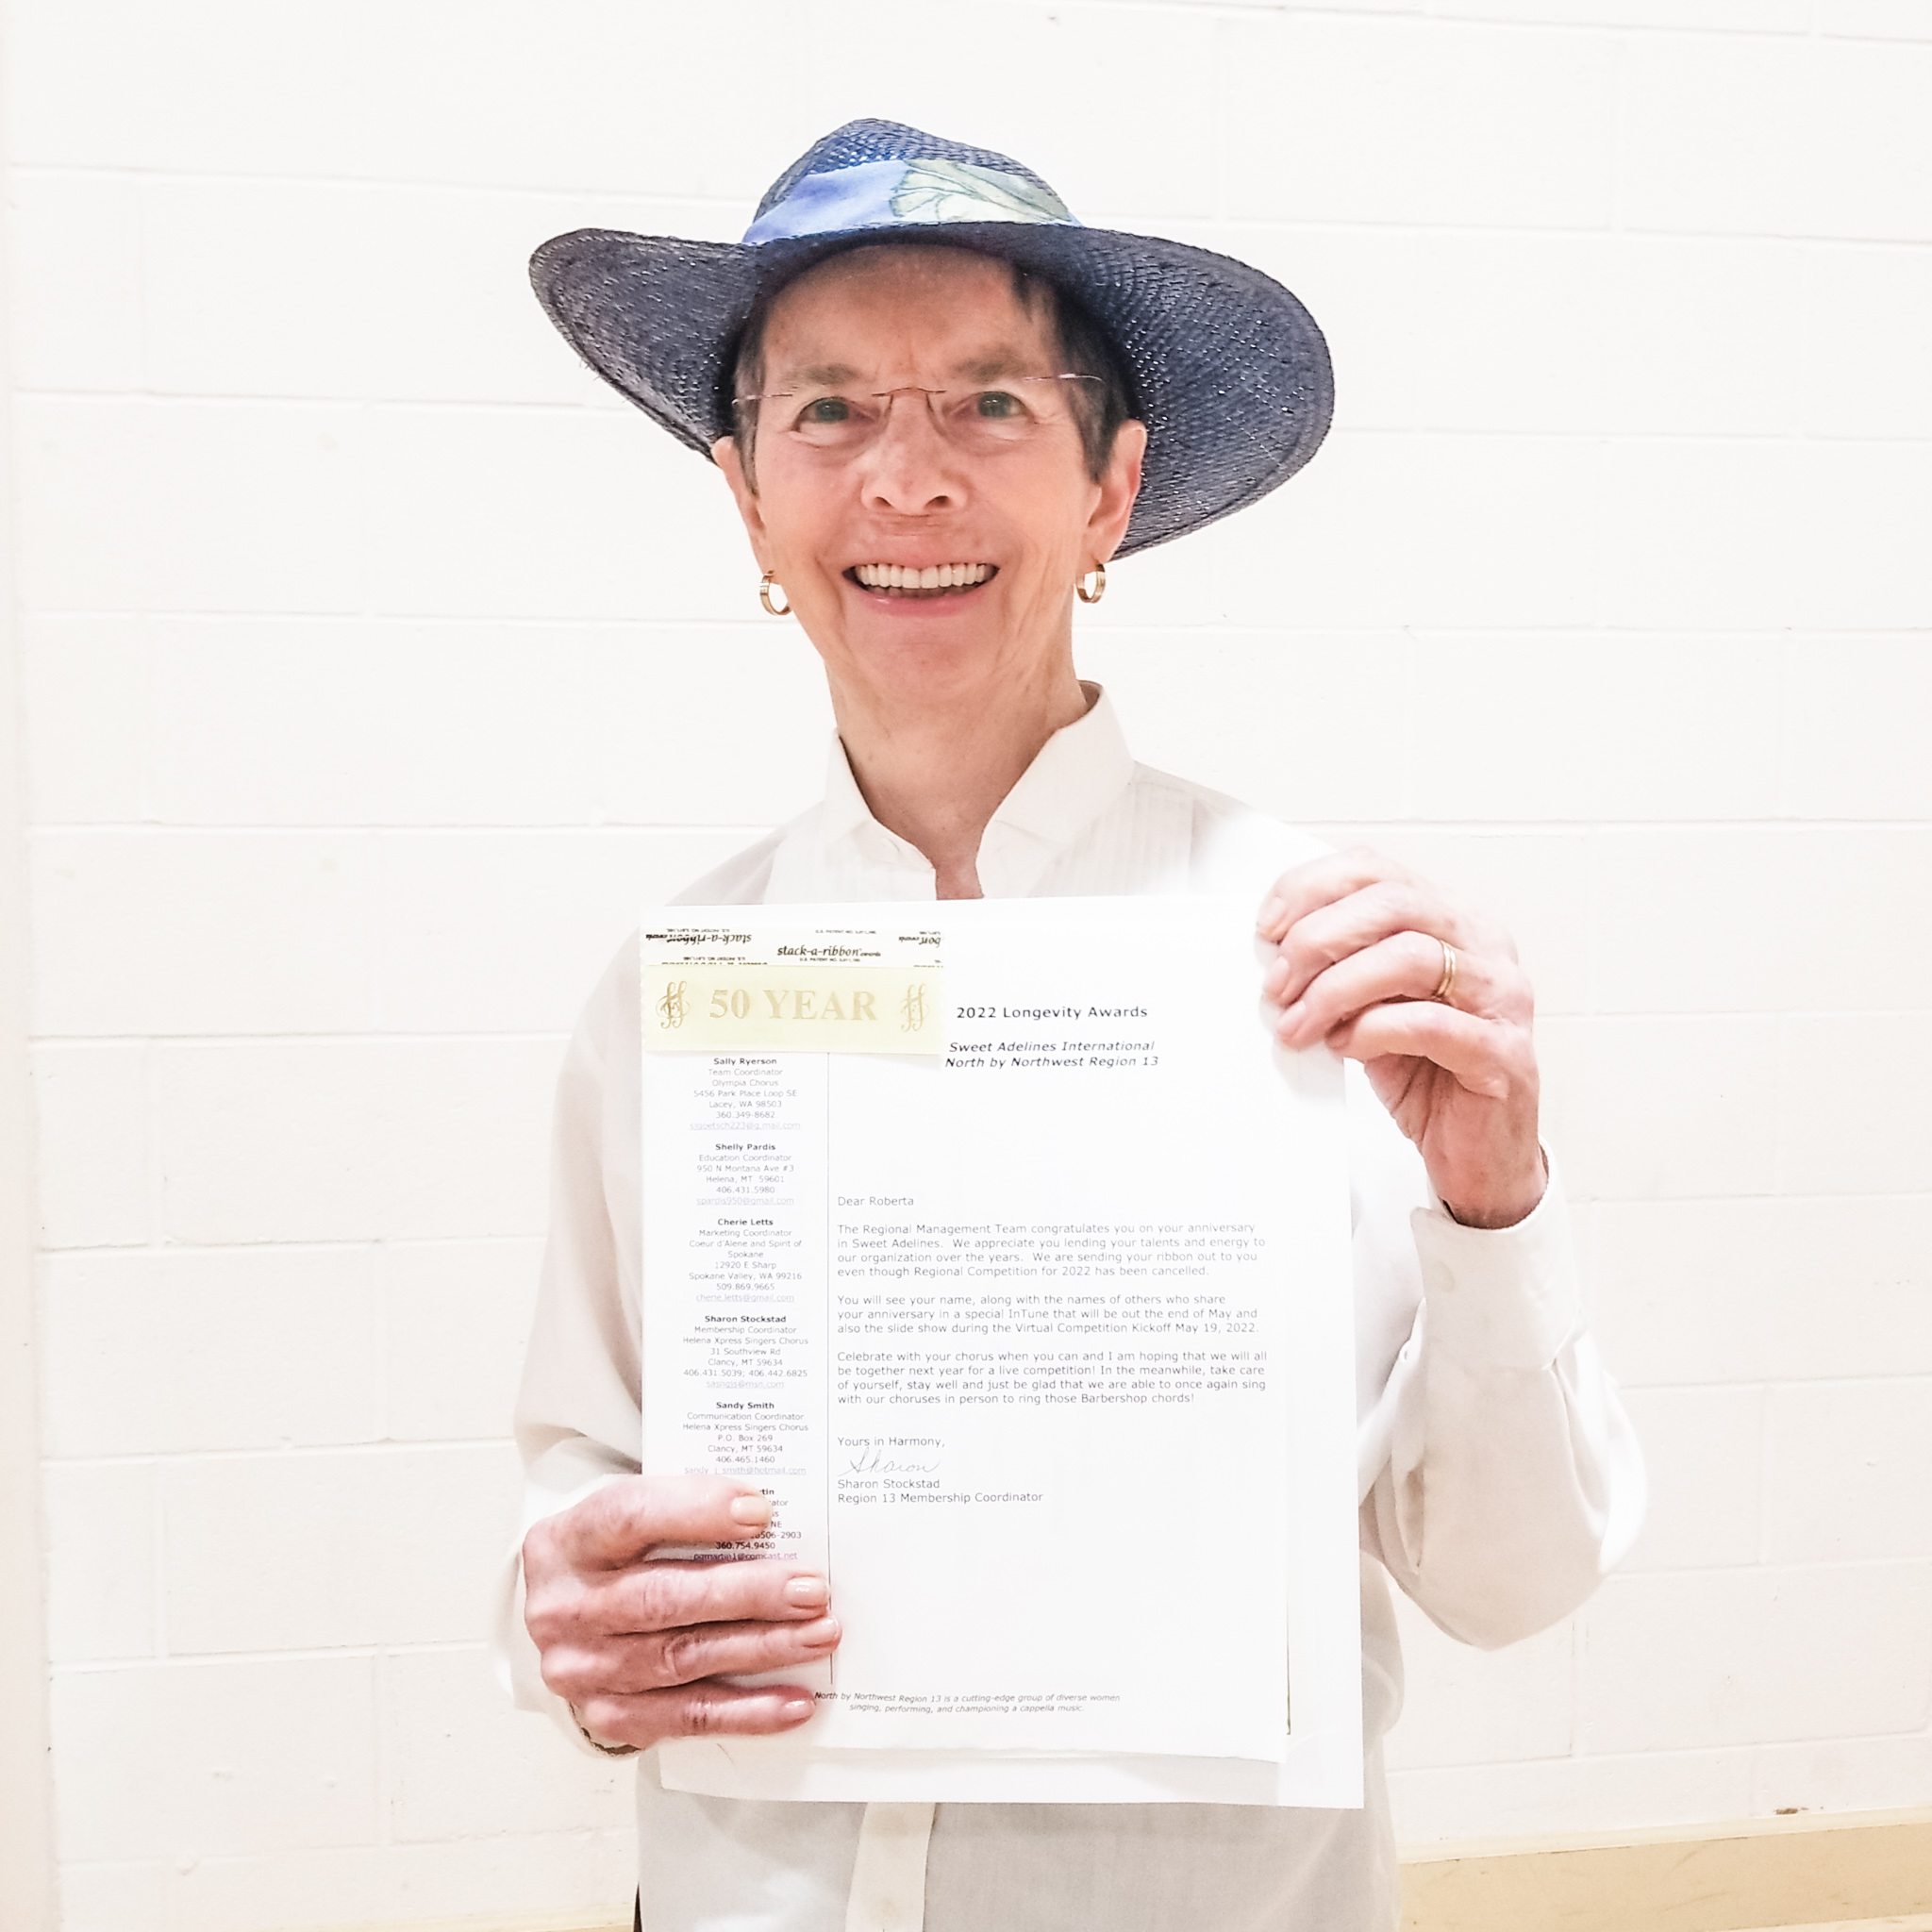 stack-a-ribbon
stack-a-ribbon awards
50 YEAR
2022 Longevity Awards
Sweet Adelines International
North by Northwest Region 13
Sally Ryerson
Team Coordinator
Olympia Chorus
5456 Park Place Loop SE
Lacey, WA 98503
360.349-8682
Shelly Pardis
Education Coordinator
950 N Montana Ave #3
Helena, MT 59601
406.431.5980
spardis950@gmail.com
Cherie Letts
Marketing Coordinator
Coeur d'Alene and Spirit of
Spokane
12920 E Sharp
Spokane Valley, WA 99216
509.869.9665
cherie.letts@gmail.com
Sharon Stockstad
Membership Coordinator
Helena Xpress Singers Chorus
31 Southview Rd
Clancy, MT 59634
406.431.5039; 406.442.6825
Sandy Smith
Communication Coordinator
Helena Xpress Singers Chorus
P.O. Box 269
Clancy, MT 59634
406.465.1460
sandy_j_smith@hotmail.com
NE
506-2903
360.754.9450
pgmartin1@comcast.net
Dear Roberta
The Regional Management Team congratulates you on your anniversary
in Sweet Adelines. We appreciate you lending your talents and energy to
our organization over the years. We are sending your ribbon out to you
even though Regional Competition for 2022 has been cancelled.
You will see your name, along with the names of others who share
your anniversary in a special InTune that will be out the end of May and
also the slide show during the Virtual Competition Kickoff May 19, 2022.
Celebrate with your chorus when you can and I am hoping that we will all
be together next year for a live competition! In the meanwhile, take care
of yourself, stay well and just be glad that we are able to once again sing
with our choruses in person to ring those Barbershop chords!
Yours in Harmony,
Sharon
Sharon Stockstad
Region 13 Membership Coordinator
North by Northwest Region 13 is a cutting-edge group of diverse women
singing, performing, and championing a cappella music.